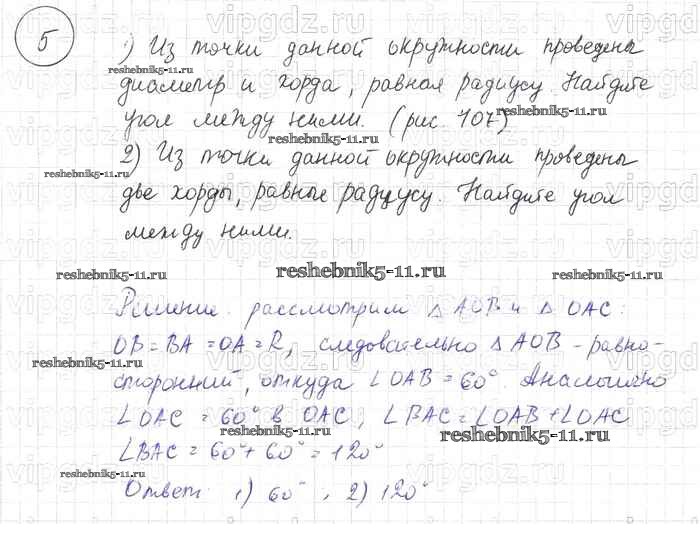 5
1) Из точки данной окружности проведены
диаметр и хорда, равная радиусу. Найдите
угол между ними. (рис. 107)
2) Из точки данной окружности проведены
две хорды, равные радиусу. Найдите угол
между ними.
reshebnik5-11.ru
Решение. рассмотрим △ AOB и △ OAC:
OB = BA = OA = R, следовательно △ AOB - равно-
сторонний, откуда ∠OAB = 60°. Аналогично
∠OAC = 60° в OAC, ∠BAC = ∠OAB + ∠OAC
∠BAC = 60° + 60° = 120°
Ответ: 1) 60°; 2) 120°